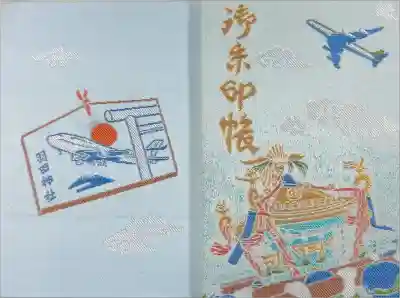 御朱印帳
羽田神社